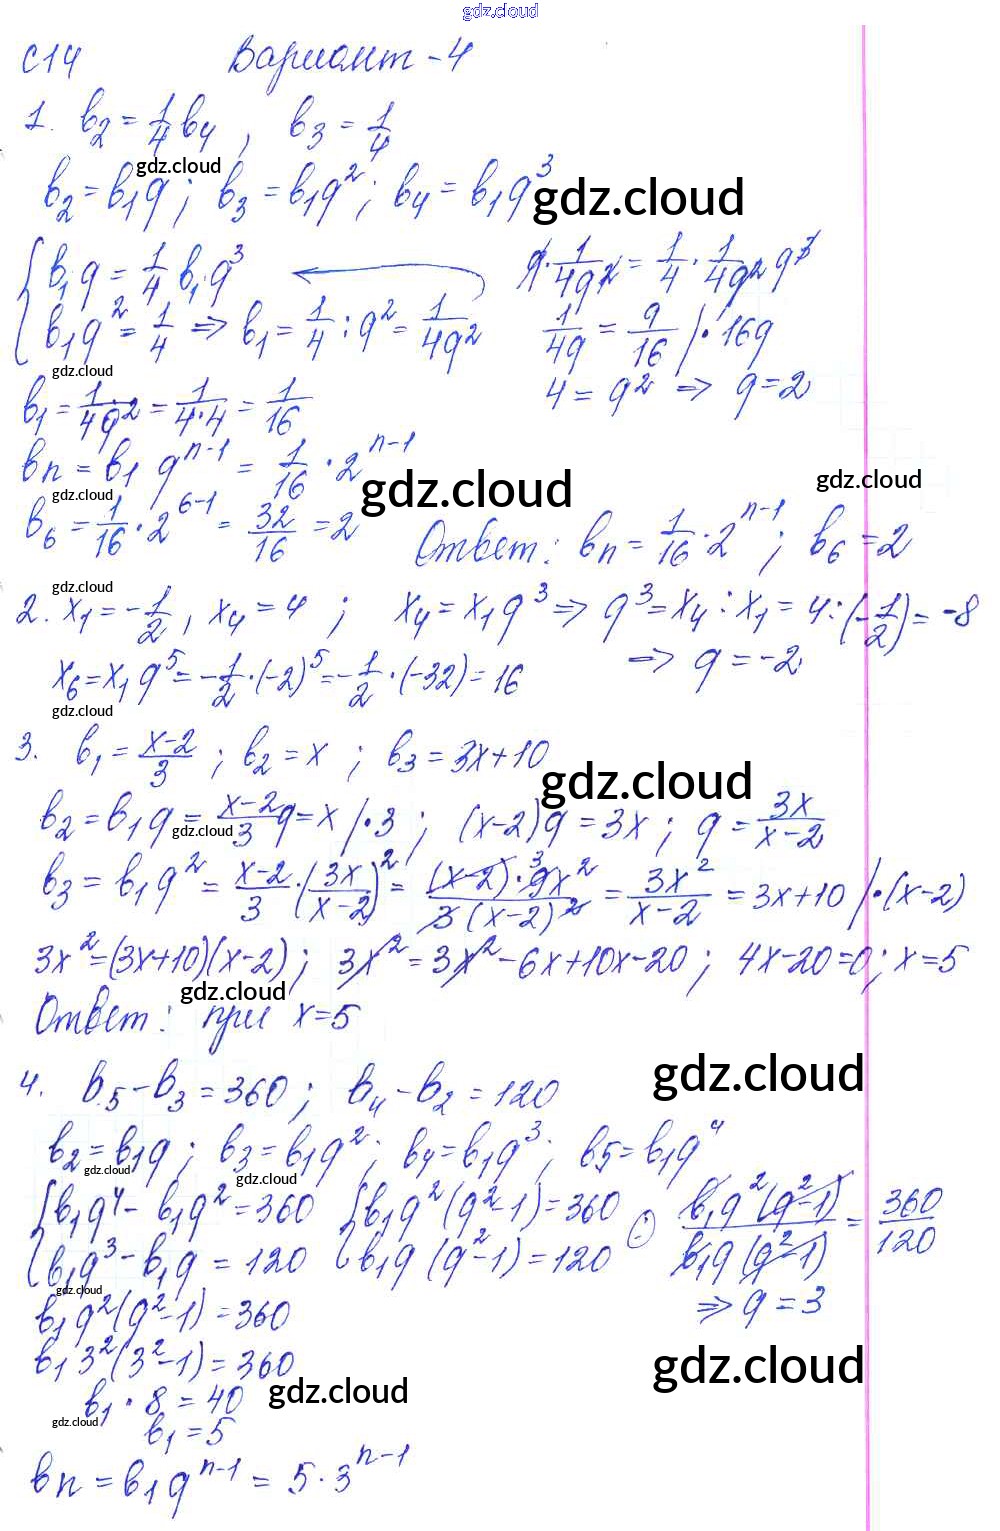 gdz.cloud
С14 Вариант-4
1. b₂ = 1/4 b₄ , b₃ = 1/4
gdz.cloud
b₂ = b₁q ; b₃ = b₁q² ; b₄ = b₁q³ gdz.cloud
b₁q = 1/4 b₁q³ q · 1/4q² = 1/4 · 1/4q² q³
b₁q² = 1/4 => b₁ = 1/4 : q² = 1/4q² 1/4q = q/16 | · 16q
gdz.cloud
b₁ = 1/4q² = 1/4·4 = 1/16 4 = q² => q = 2
bn = b₁ qⁿ⁻¹ = 1/16 · 2ⁿ⁻¹
gdz.cloud gdz.cloud gdz.cloud
b₆ = 1/16 · 2⁶⁻¹ = 32/16 = 2 Ответ: bn = 1/16 · 2ⁿ⁻¹ ; b₆ = 2
gdz.cloud
2. x₁ = -1/2 , x₄ = 4 ; x₄ = x₁q³ => q³ = x₄ : x₁ = 4 : (-1/2) = -8
=> q = -2
x₆ = x₁ q⁵ = -1/2 · (-2)⁵ = -1/2 · (-32) = 16
gdz.cloud
3. b₁ = x-2/3 ; b₂ = x ; b₃ = 3x+10
gdz.cloud
b₂ = b₁q = x-2/3 q = x | · 3 ; (x-2)q = 3x ; q = 3x/x-2
gdz.cloud
b₃ = b₁q² = x-2/3 · (3x/x-2)² = (x-2)·9³x²/3(x-2)² = 3x²/x-2 = 3x+10 | · (x-2)
3x² = (3x+10)(x-2) ; 3x² = 3x² - 6x + 10x - 20 ; 4x - 20 = 0 ; x = 5
gdz.cloud
Ответ: при x = 5
4. b₅ - b₃ = 360 ; b₄ - b₂ = 120 gdz.cloud
b₂ = b₁q ; b₃ = b₁q² ; b₄ = b₁q³ ; b₅ = b₁q⁴
gdz.cloud gdz.cloud
b₁q⁴ - b₁q² = 360 b₁q²(q²-1) = 360 : b₁q²(q²-1)/b₁q(q²-1) = 360/120
b₁q³ - b₁q = 120 b₁q(q²-1) = 120
gdz.cloud
b₁q²(q²-1) = 360 => q = 3
b₁3²(3²-1) = 360 gdz.cloud
b₁ · 8 = 40 gdz.cloud
gdz.cloud
b₁ = 5
bn = b₁qⁿ⁻¹ = 5 · 3ⁿ⁻¹